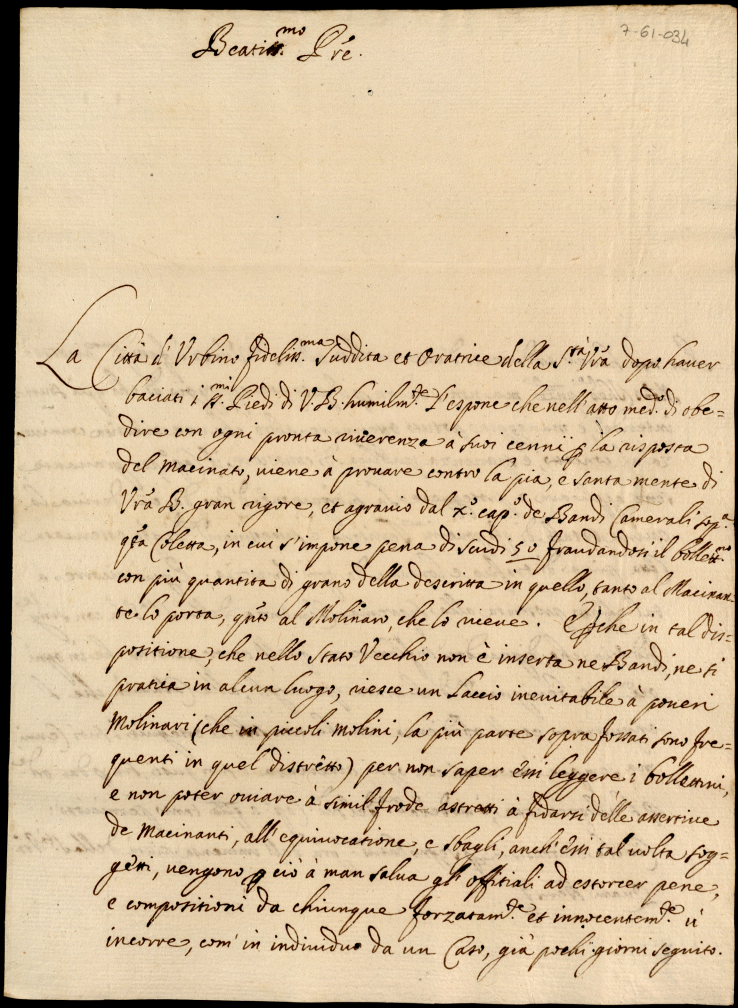 7-61-034
Beatiss.mo Pr̃e.
La Città d'Urbino fideliss.ma suddita et Oratrice della S.tà Vr̃a dopo haver
baciati i SS.mi Piedi di V.B. humilm.te l'espone che nell'atto med.o di obe=
dire con ogni pronta riverenza à suoi cenni ꝑ la risposta
del Macinato, viene à provare contro la pia, e santa mente di
Vr̃a B. gran rigore, et agravio dal x.o cap.o de Bandi Camerali sop.a
qt̃a Coletta, in cui s'impone pena di scudi 50 fraudandosi il bollett.no
con più quantita di grano della descritta in quello, tanto al Macinan
te lo porta, qñto al Molinaro, che lo riceve. E ꝑche in tal dis=
positione, che nello stato Vecchio non è inserta ne Bandi, ne si
pratica in alcun luogo, riesce un Laccio inevitabile à poveri
Molinari (che in piccoli molini, la più parte sopra fossati sono fre=
quenti in quel distretto) per non saper essi leggere i bollettini,
e non poter oviare à simil frode astretti à fidarsi delle assertive
de Macinanti, all'equivocatione, e sbagli, anch'essi tal volta sog=
getti, vengono ꝑ ciò à man salva gl'offitiali ad estorcer pene,
e compositioni da chiunque forzatam.te et innocentem.te vi
incorre, com'in individuo da un Caso, già pochi giorni seguito.